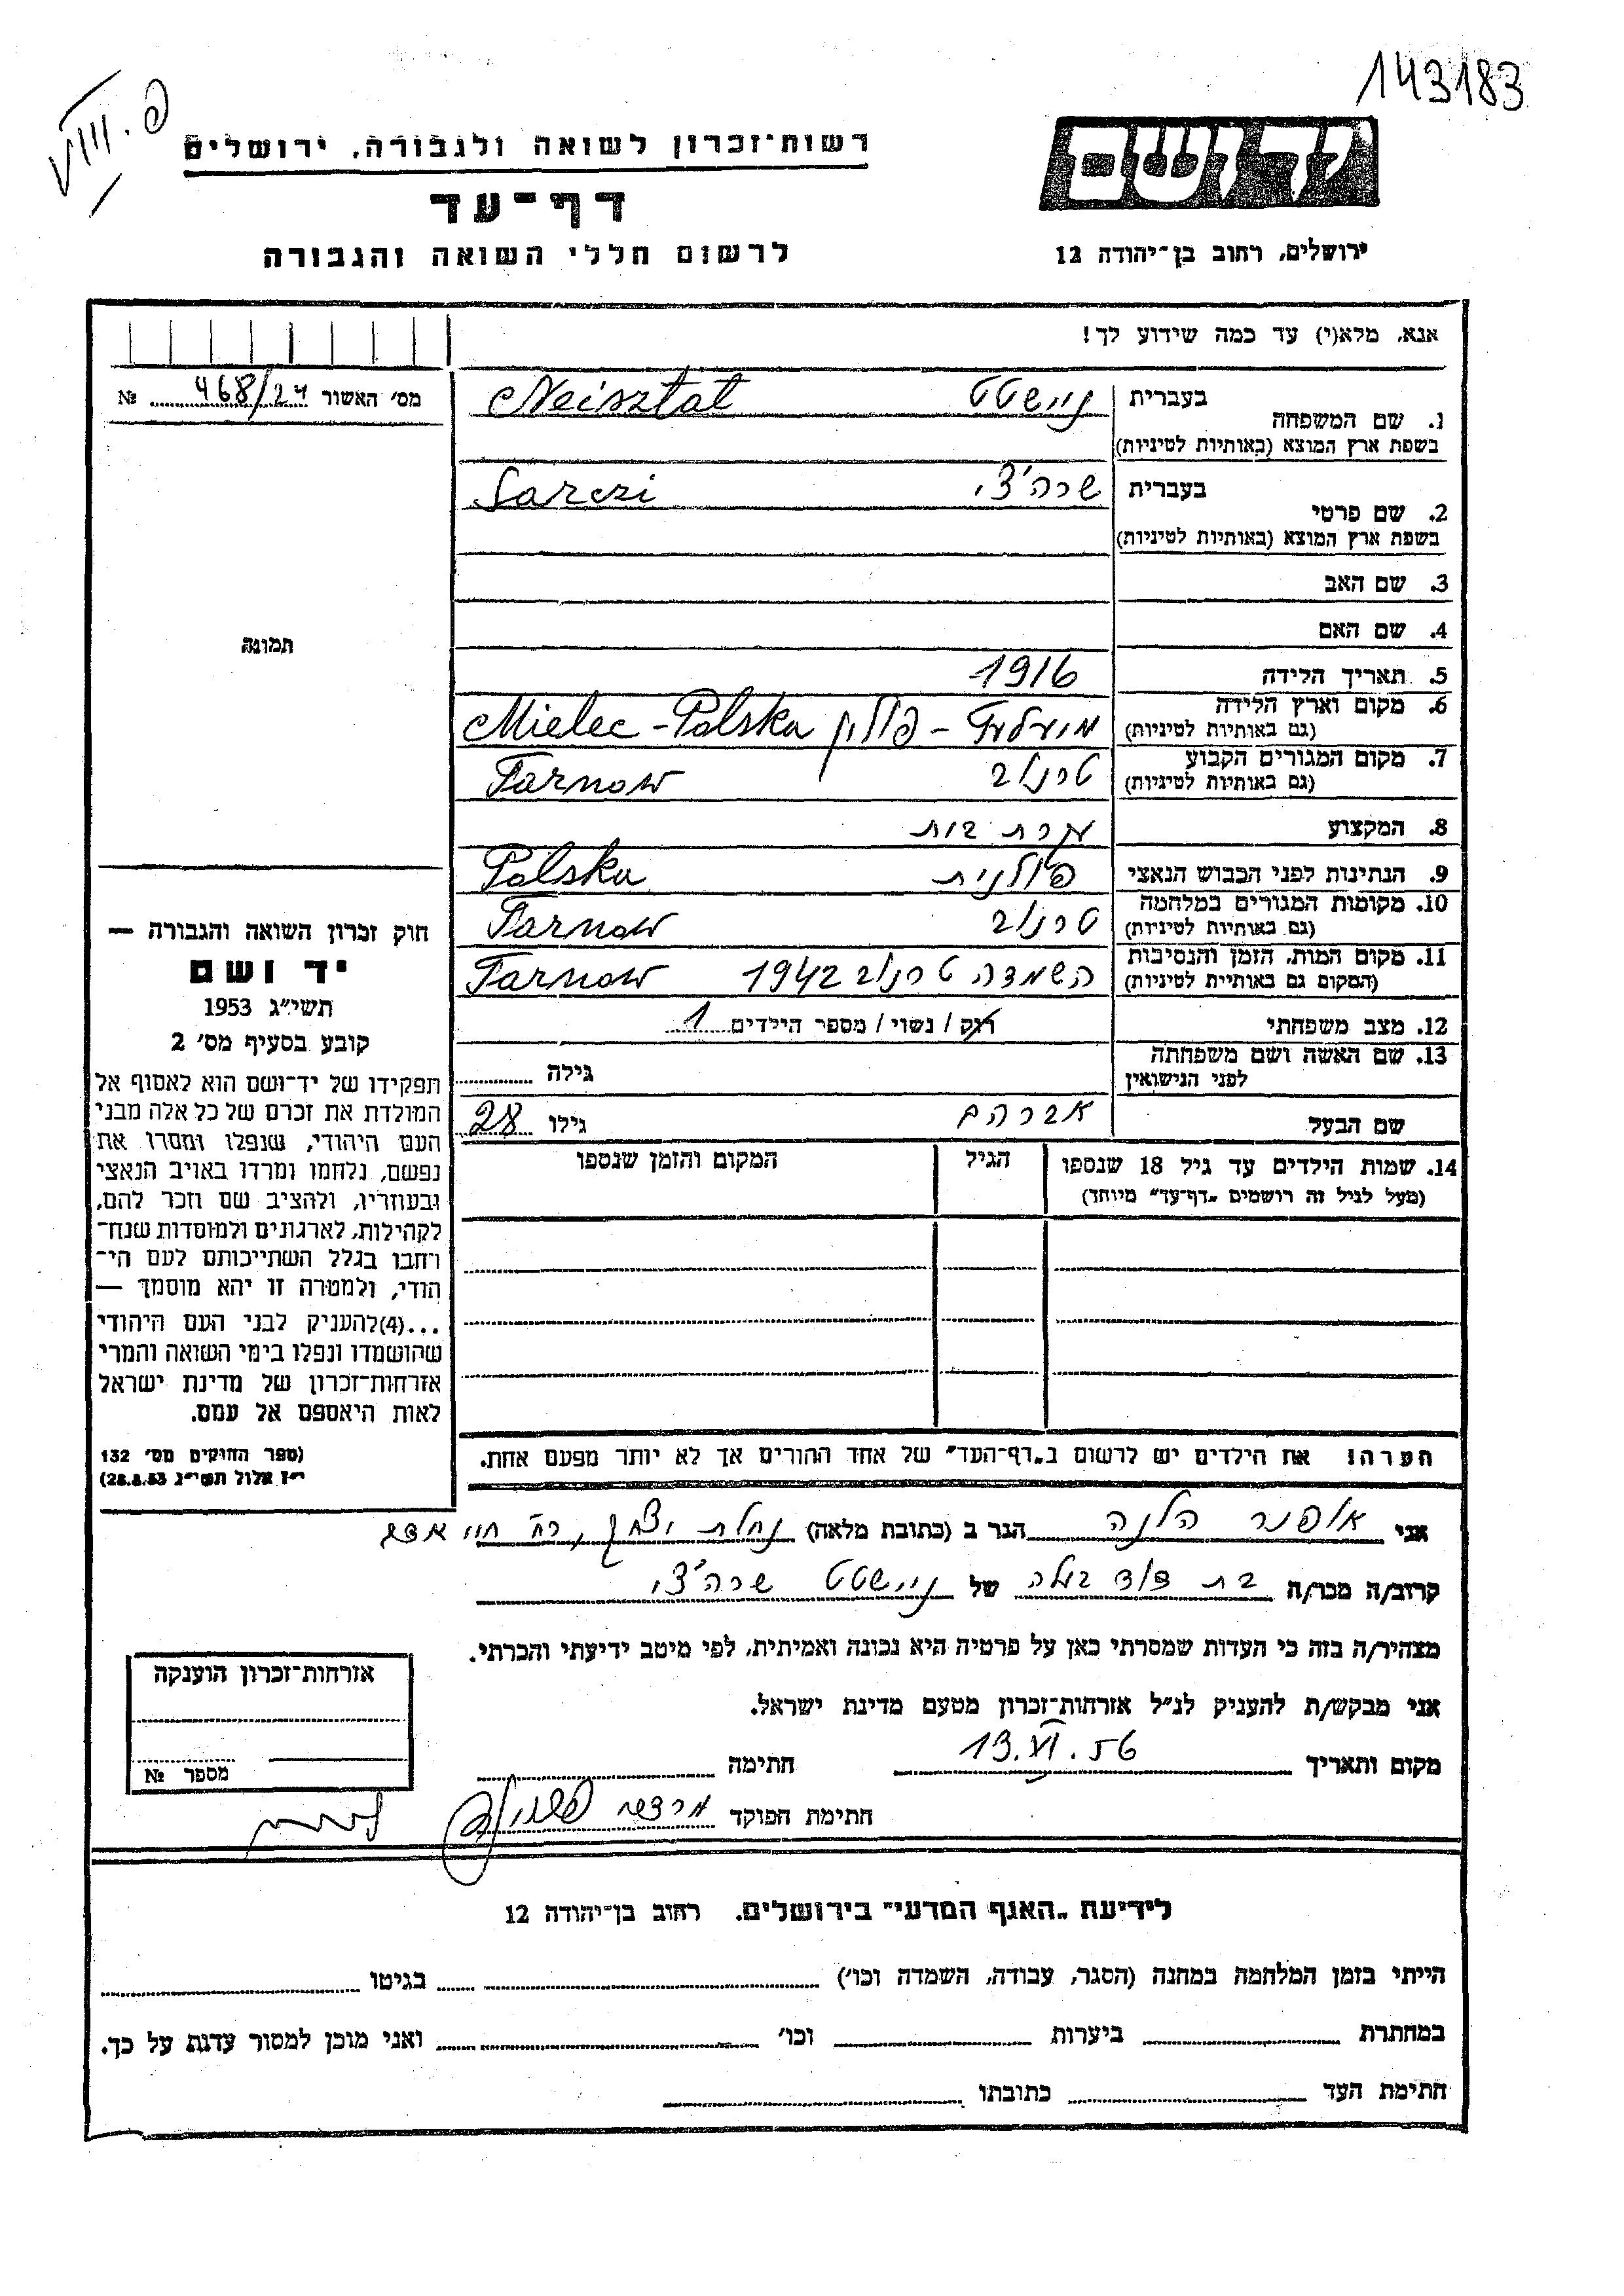 143183
VIII. פ
יד ושם
רשות־זכרון לשואה ולגבורה, ירושלים
דף־עד
לרשום חללי השואה והגבורה
ירושלים, רחוב בן־יהודה 12
אנא, מלא(י) עד כמה שידוע לך!
מס׳ האשור 468/24 №
1. שם המשפחה
בעברית ניישטט Neisztat
בשפת ארץ המוצא (באותיות לטיניות)
2. שם פרטי
בעברית שרה'צי Sarczi
בשפת ארץ המוצא (באותיות לטיניות)
3. שם האב
4. שם האם
5. תאריך הלידה 1916
6. מקום וארץ הלידה
(גם באותיות לטיניות) – פולין Mielec - Polska
7. מקום המגורים הקבוע טרנוב Tarnow
(גם באותיות לטיניות)
8. המקצוע עקרת בית
9. הנתינות לפני הכבוש הנאצי פולנית Polska
10. מקומות המגורים במלחמה טרנוב Tarnow
(גם באותיות לטיניות)
11. מקום המות, הזמן והנסיבות השמדה טרנוב 1942 Tarnow
(המקום גם באותיית לטיניות)
12. מצב משפחתי רוק / נשוי / מספר הילדים 1
13. שם האשה ושם משפחתה
לפני הנישואין
גילה
שם הבעל אברהם גילו 28
14. שמות הילדים עד גיל 18 שנספו
(מעל לגיל זה רושמים „דף־עד” מיוחד)
הגיל
המקום והזמן שנספו
הערה! את הילדים יש לרשום ב„דף־העד” של אחד ההורים אך לא יותר מפעם אחת.
תמונה
חוק זכרון השואה והגבורה —
יד ושם
תשי״ג 1953
קובע בסעיף מס׳ 2
תפקידו של יד־ושם הוא לאסוף אל
המולדת את זכרם של כל אלה מבני
העם היהודי, שנפלו ומסרו את
נפשם, נלחמו ומרדו באויב הנאצי
ובעוזריו, ולהציב שם וזכר להם,
לקהילות, לארגונים ולמוסדות שנח־
רחבו בגלל השתייכותם לעם הי־
הודי, ולמטרה זו יהא מוסמך —
...(4)להעניק לבני העם היהודי
שהושמדו ונפלו בימי השואה והמרי
אזרחות־זכרון של מדינת ישראל
לאות היאספם אל עמם.
(ספר החוקים מס׳ 132
י״ז אלול תשי״ג 28.8.53)
אני אופנר הלנה הגר ב (כתובת מלאה) נחלת יצחק, רח'
קרוב/ה מכר/ה בת דודה של ניישטט שרה'צי
מצהיר/ה בזה כי העדות שמסרתי כאן על פרטיה היא נכונה ואמיתית, לפי מיטב ידיעתי והכרתי.
אני מבקש/ת להעניק לנ״ל אזרחות־זכרון מטעם מדינת ישראל.
מקום ותאריך 13.VI.56 חתימה
חתימת הפוקד
אזרחות־זכרון הוענקה
מספר №
לידיעת „האגף המדעי” בירושלים. רחוב בן־יהודה 12
הייתי בזמן המלחמה במחנה (הסגר, עבודה, השמדה וכו׳) בגיטו
במחתרת ביערות וכו׳ ואני מוכן למסור עדות על כך.
חתימת העד כתובתו